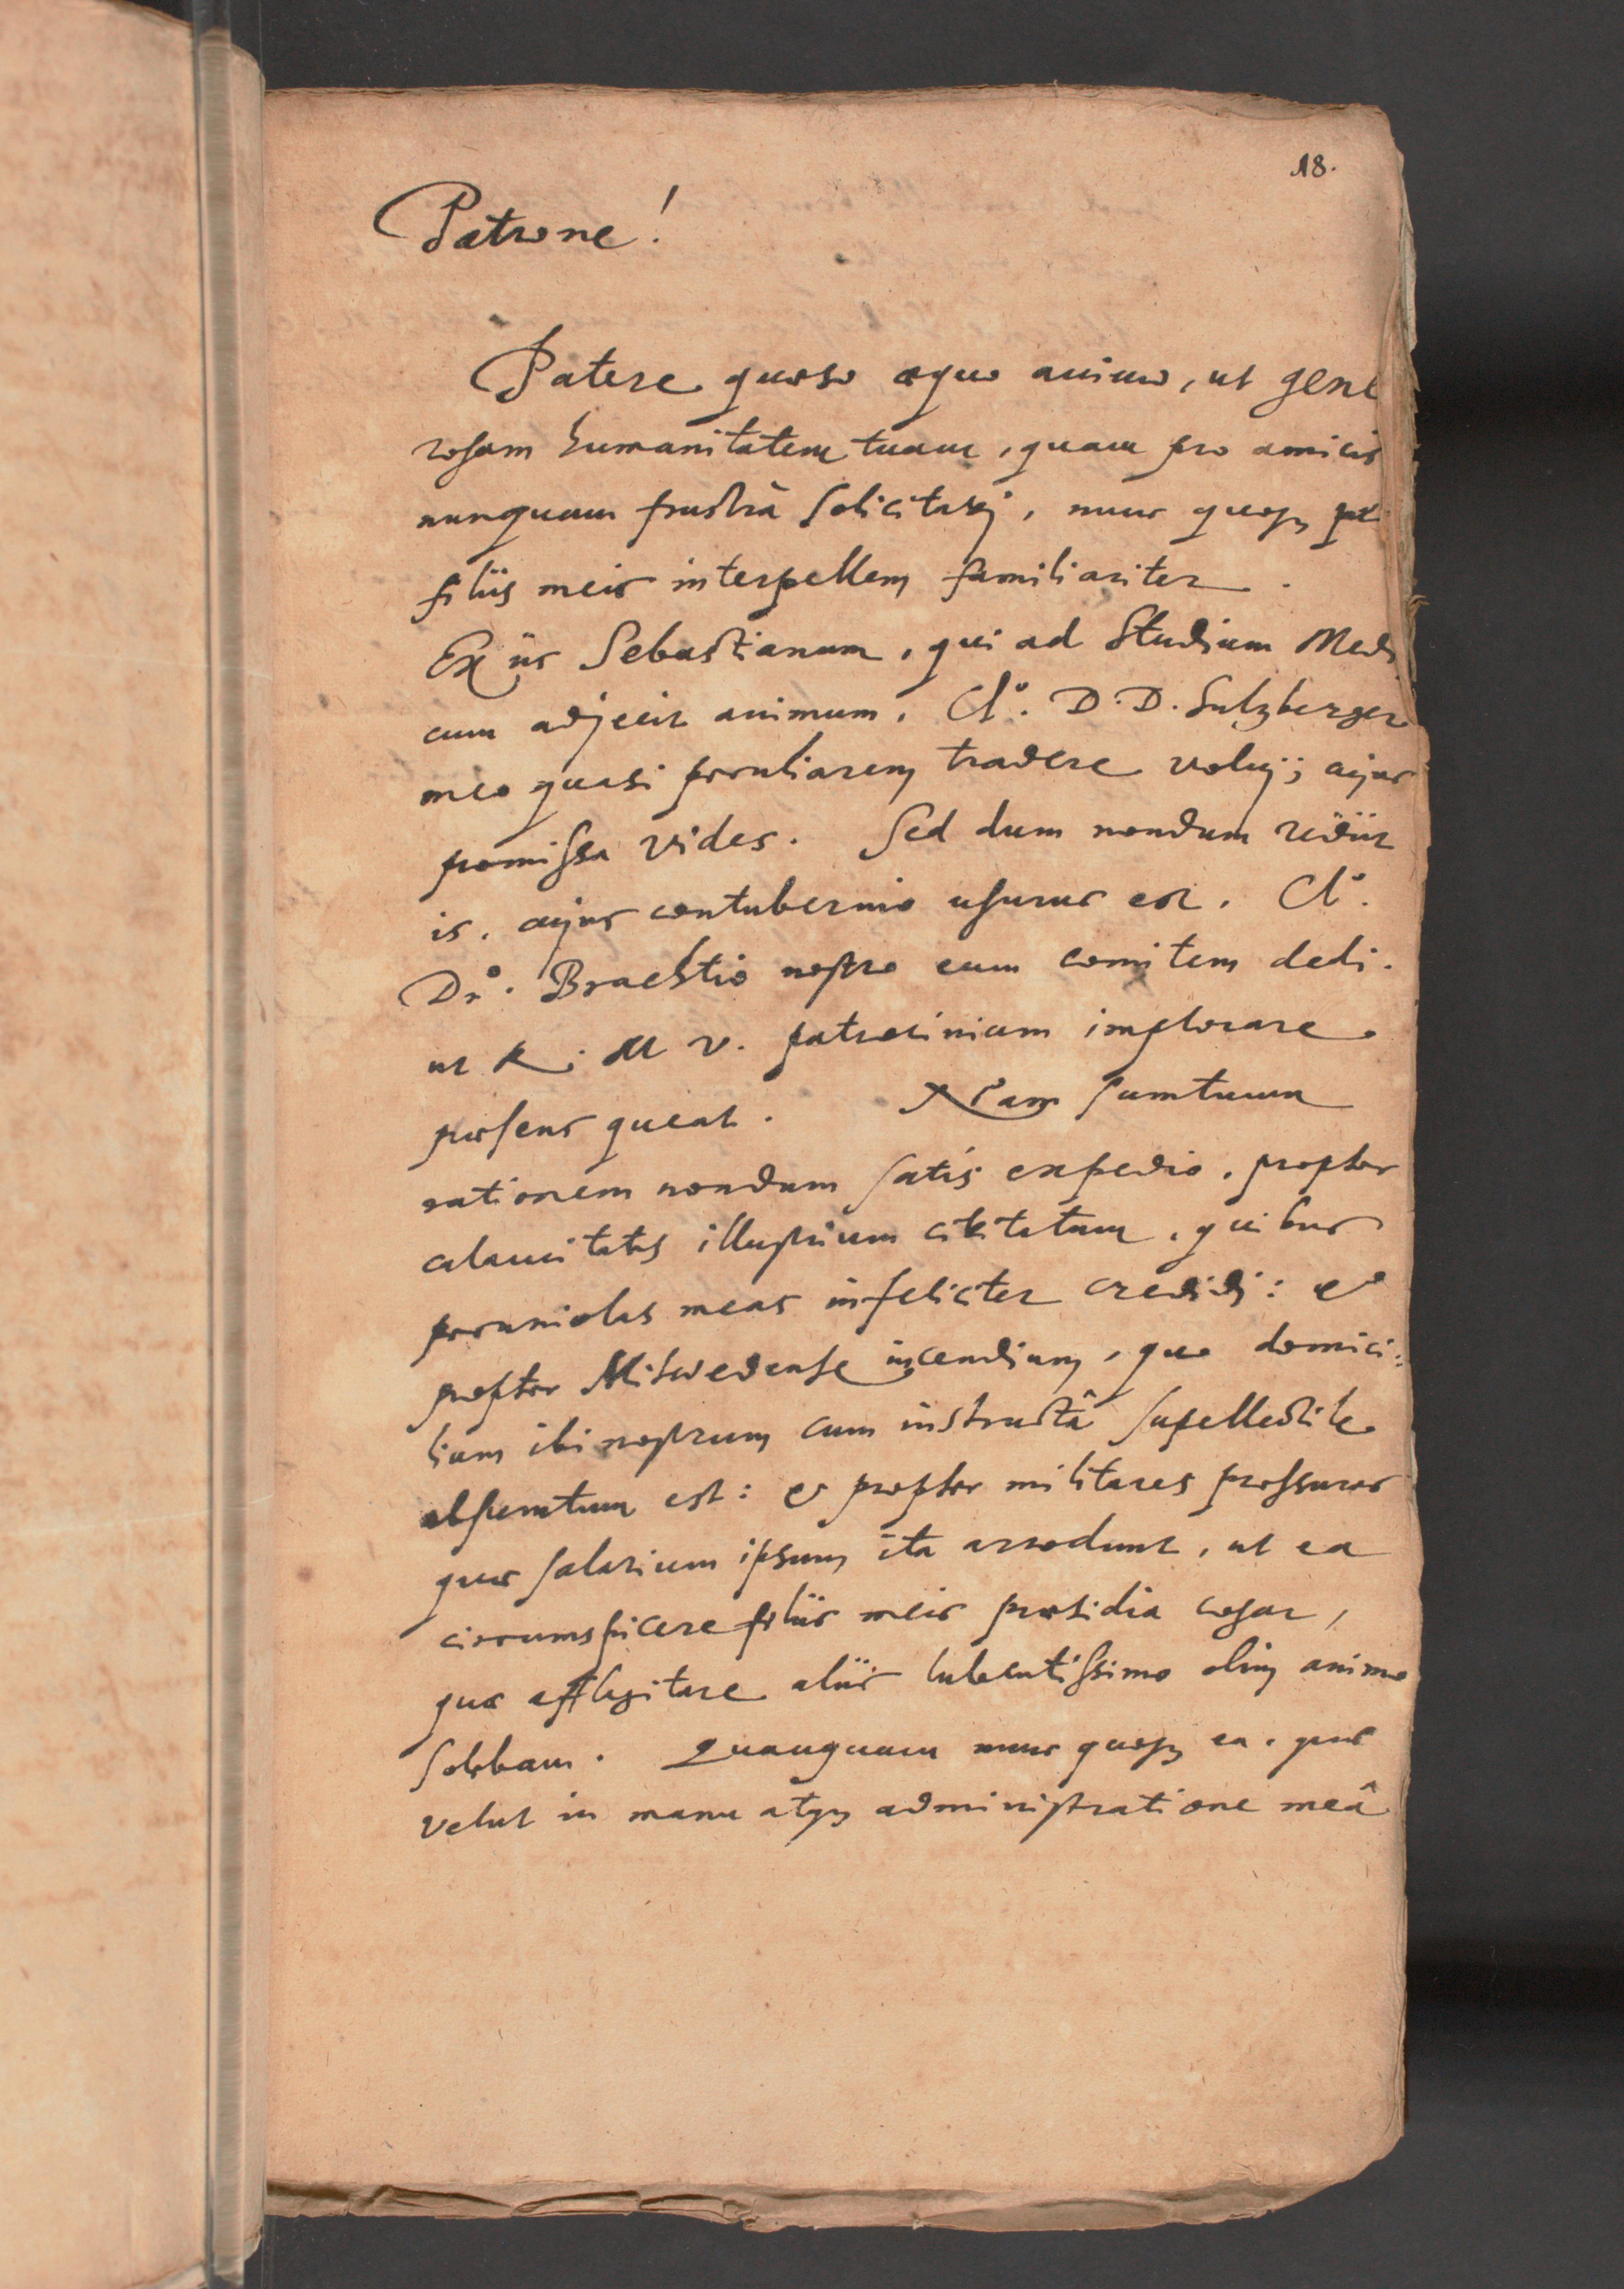 18.
Patrone!
Patere quæso æquo animo, ut gene
rosam humanitatem tuam, quam pro amicis
nunquam frustrà solicitavj, nunc quoq₃ p
filiis meis interpellem familiariter.
Ex iis Sebastianum, qui ad Studium Medi
cum adjecit animum, Cl°. D. D. Sulzbergero
meo quasi peculiarem tradere voluj; cujus
promissa vides. Sed dum nondum rediit
is, cujus contubernio usurus est, Cl°.
Dn°. Braehtio nostro eum comitem dedi.
ut R. M V. patrocinium implorare
præsens queat. Nam sumtuum
rationem nondum satis expedio, propter
calamitates illustrium civitatum, quibus
pecuniolas meas infeliciter credidj: &
propter Mitwedense incendium, quo domici:
lium ibi nostrum cum instructâ supellectile
absumtum est: & propter militares pressuras
quæ salarium ipsum ita arrodunt, ut ea
circumspicere filiis meis præsidia cogar,
quæ efflagitare aliis lubentissimo olim animo
solebam. Quanquam nunc quoq₃ ea, quæ
velut in manu atq₃ administratione meâ